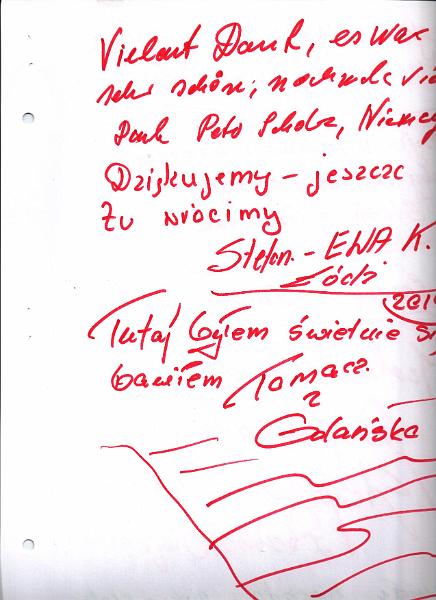 Vielen Dank, es war
sehr schön, nochmals vie
Dank Peter Scholz, Niemcy
Dziękujemy - jeszcze
tu wrócimy
Stefan. - EWA K.
Łódź
2019
Tutaj byłem świetnie się
bawiłem Tomasz
z
Gdańska